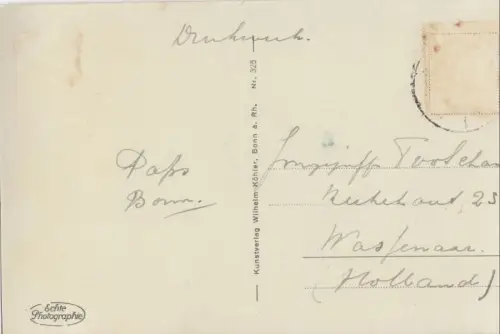 Drukwerk.
Kunstverlag Wilhelm Köhler, Bonn a. Rh. Nr. 325
Paps
Bonn.
25
Wassenaar.
(Holland)
Echte
Photographie